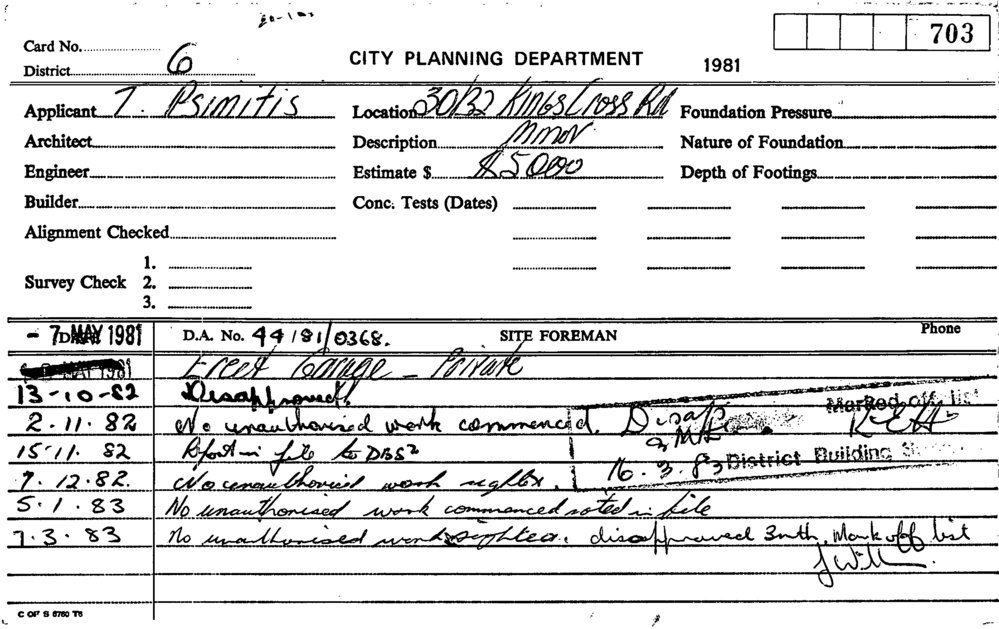 703
Card No.
District 6
CITY PLANNING DEPARTMENT 1981
Applicant T. Psimitis Location 30/32 Kings Cross Rd Foundation Pressure
Architect Description Nature of Foundation
Engineer Estimate $ $5000 Depth of Footings
Builder Conc. Tests (Dates)
Alignment Checked
1.
Survey Check 2.
3.
- 7 MAY 1981 D.A. No. 44/81/0368. SITE FOREMAN Phone
MAY 1981 Erect Garage - Private
13-10-82 Disapproved
Marked off list
2.11.82 No unauthorised work commenced. Disapp
3 Mth
15-11.82 Report in file to DBS
16.3.83 District Building
7.12.82. No unauthorised work sighted.
5.1.83 No unauthorised work commenced noted in file
7.3.83 No unauthorised work sighted. disapproved 3mth. Mark off list
C OF S 6760 T6